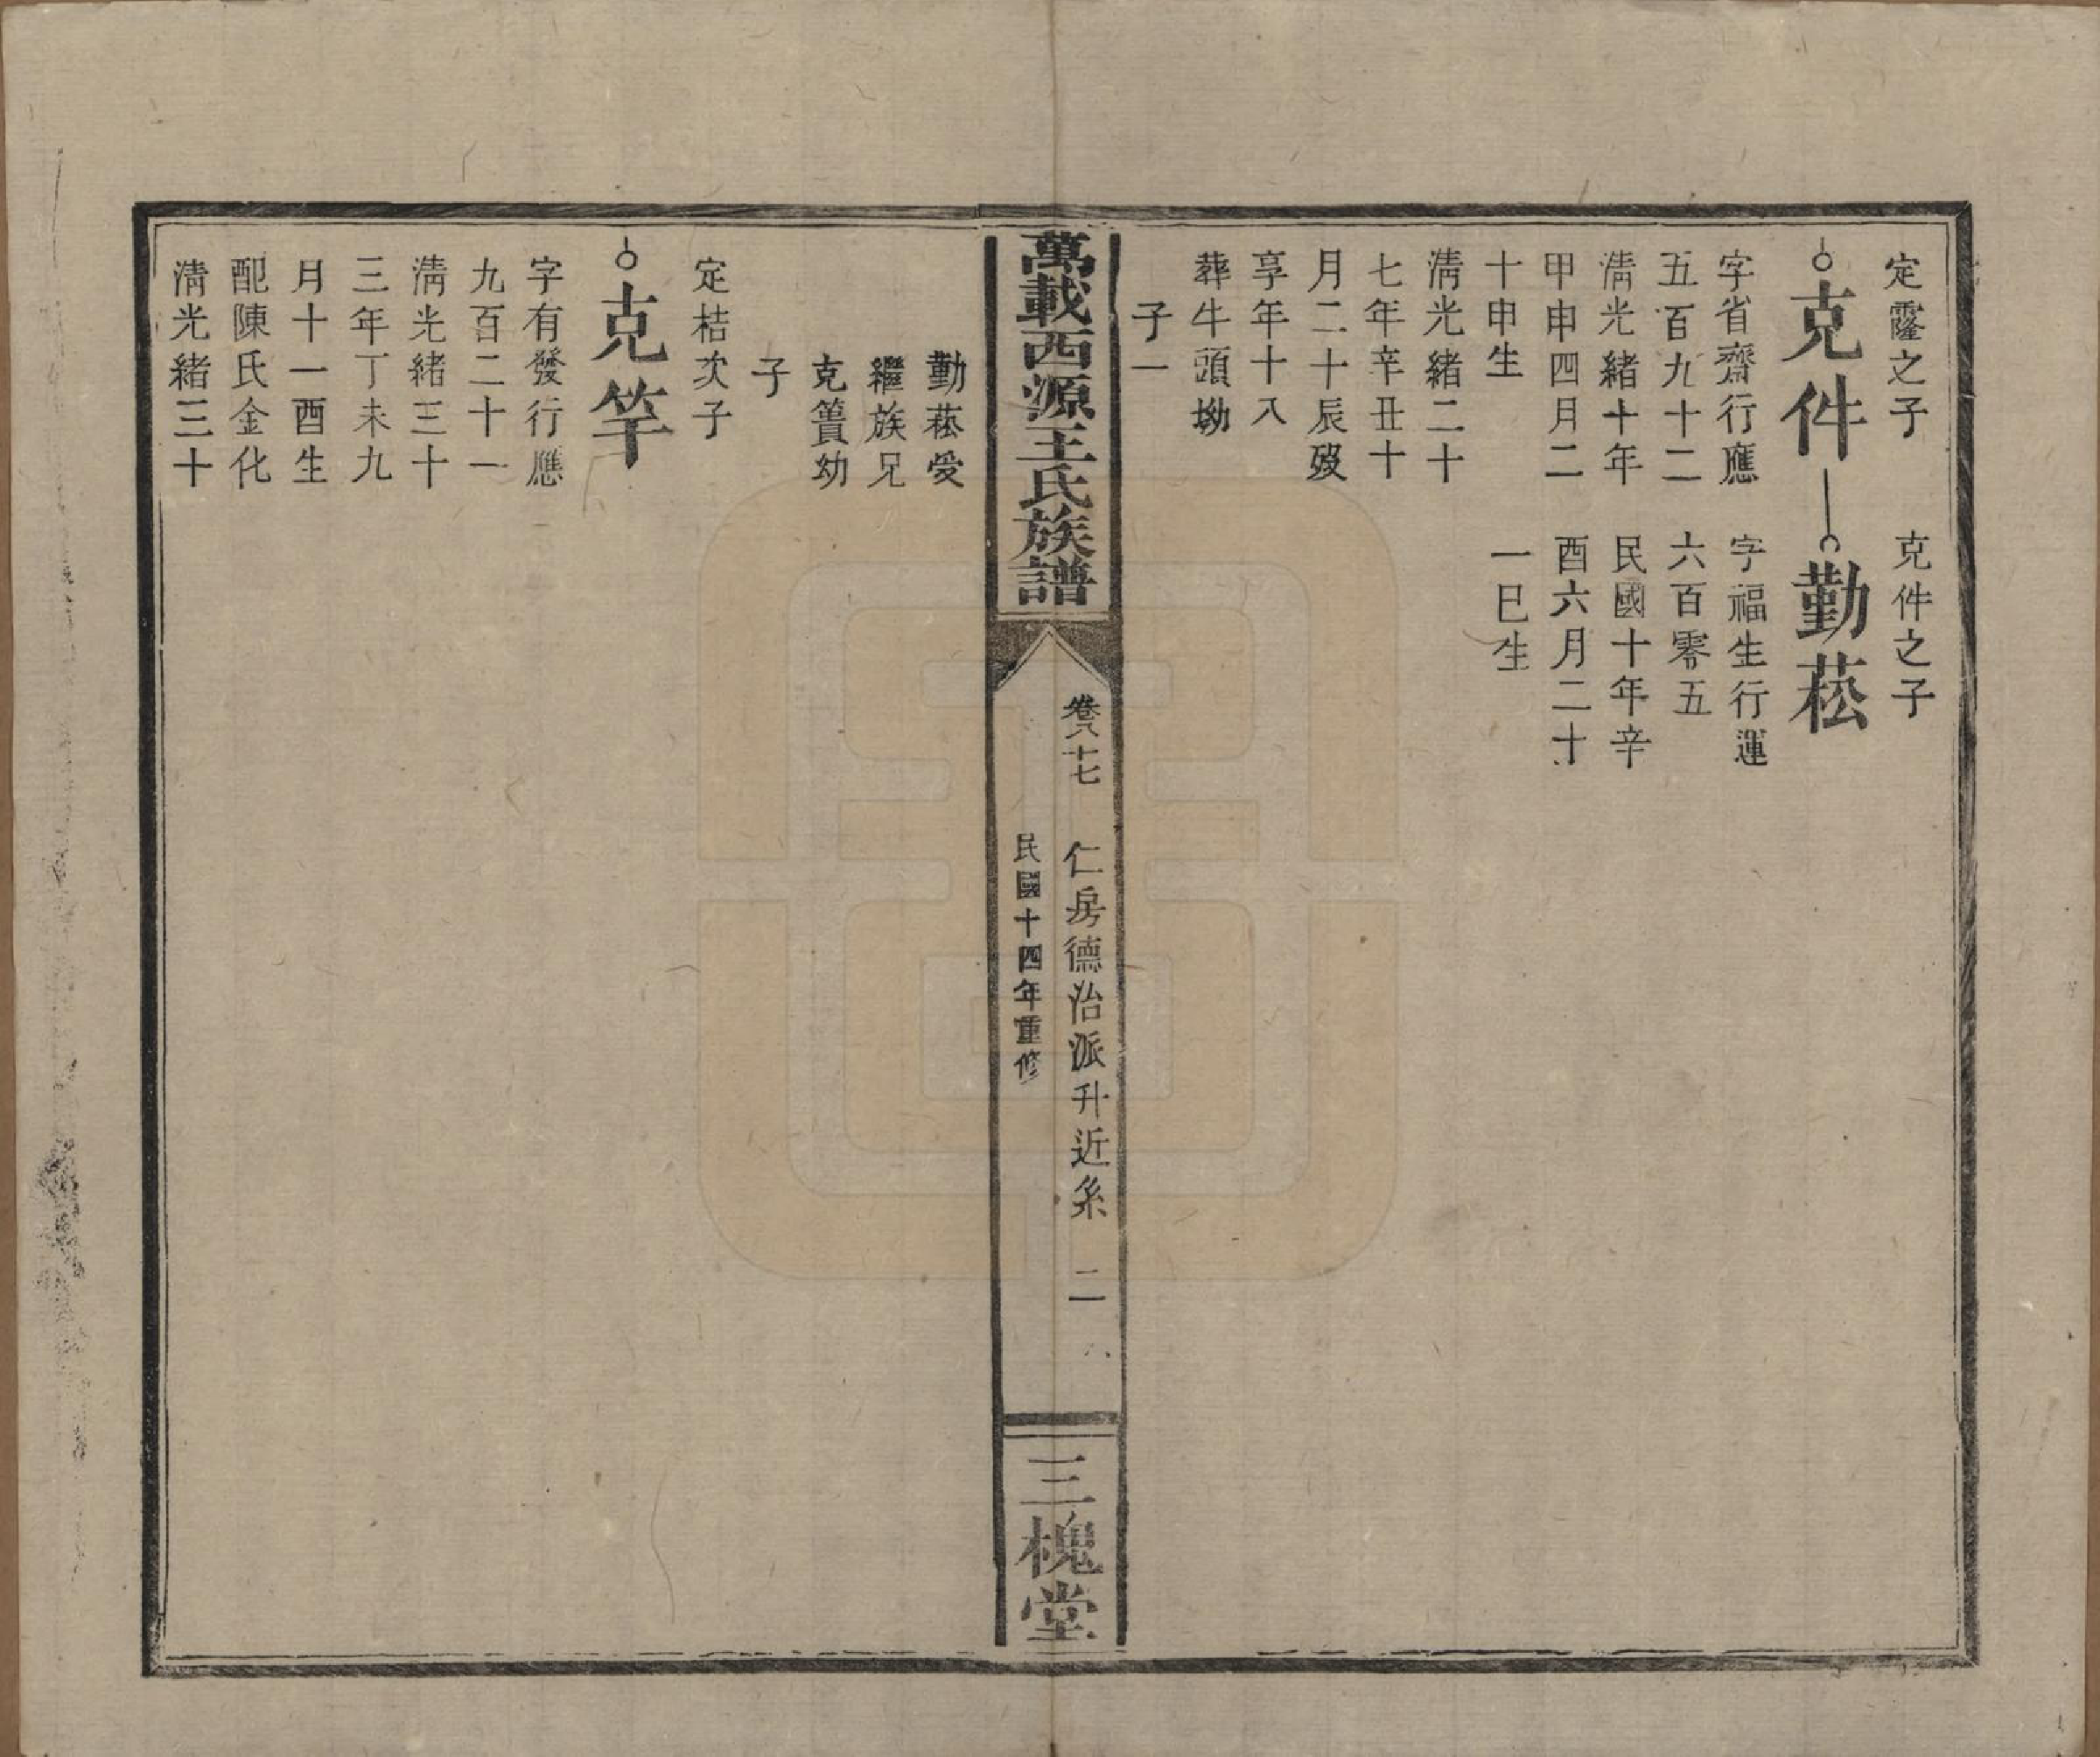 定霳之子
克件
字省齋行應
五百九十二
清光緒十年
甲申四月二
十申生
清光緒二十
七年辛丑十
月二十辰歿
享年十八
葬牛頭坳
子一
克件之子
勤菘
字福生行運
六百零五
民國十年辛
酉六月二十
一巳生
萬載西源王氏族譜
卷八十七
仁房德治派升近系
二
民國十四年重修
三槐堂
勤菘爱
繼族兄
克簣幼
子
定桔次子
克竿
字有發行應
九百二十一
清光緒三十
三年丁未九
月十一酉生
配陳氏金化
清光緒三十